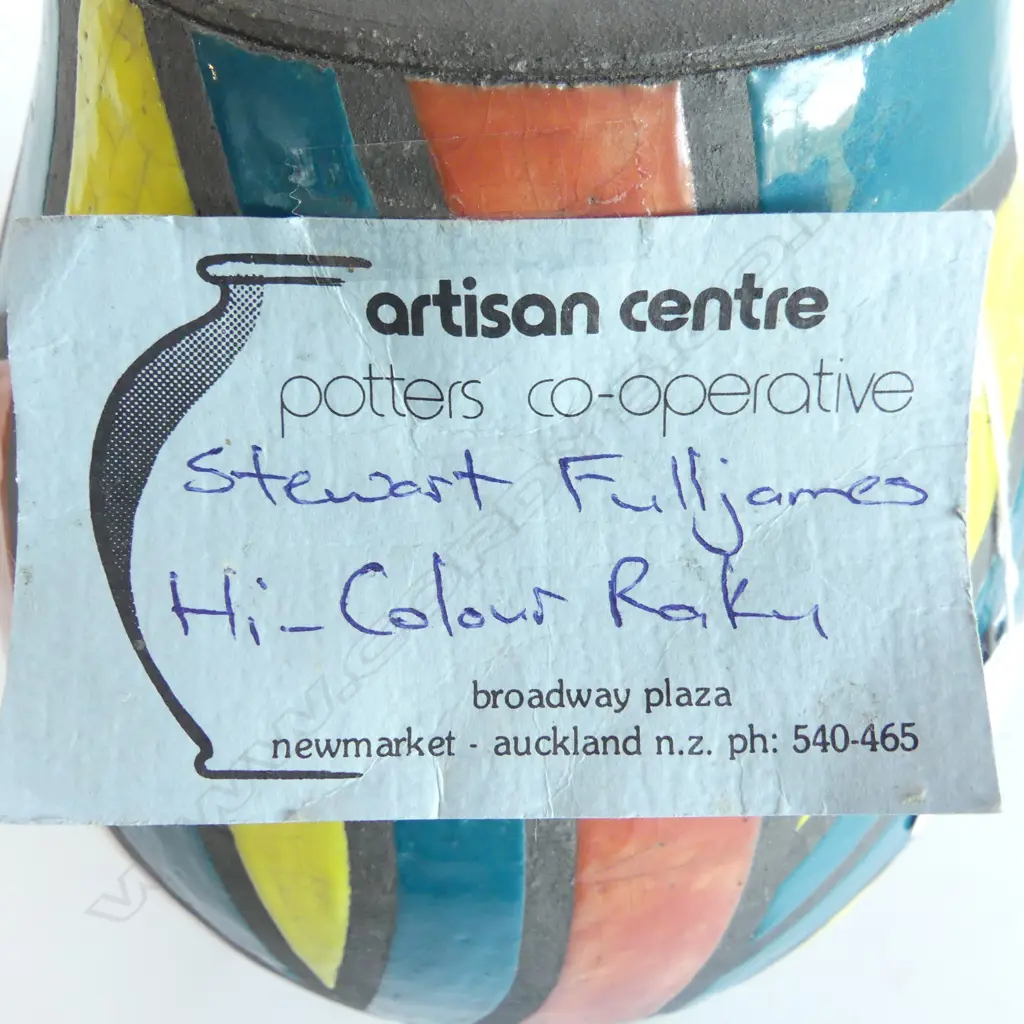 artisan centre
potters co-operative
Stewart Fulljames
Hi-Colour Raku
broadway plaza
newmarket - auckland n.z. ph: 540-465